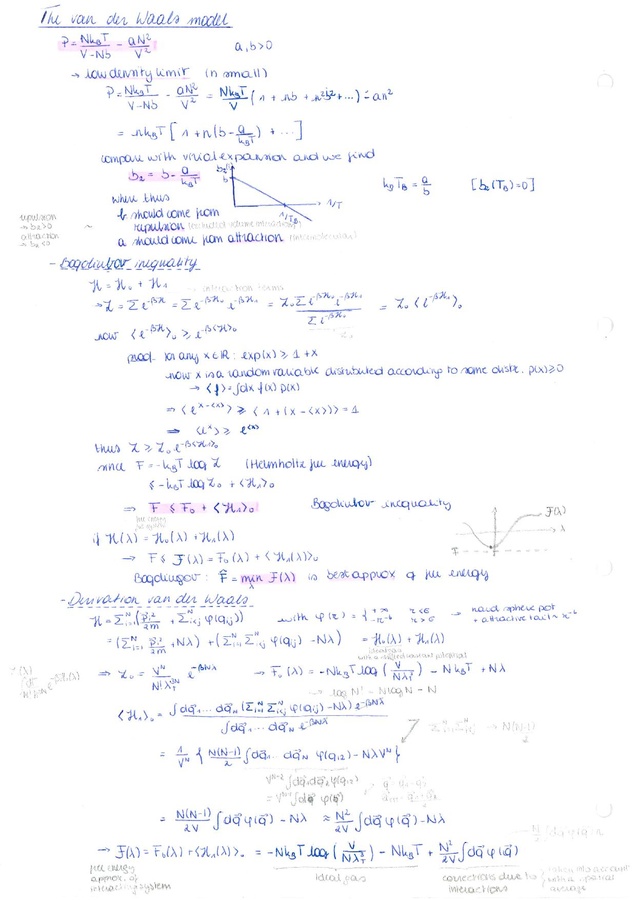 The van der Waals model
P = Nk_BT/(V-Nb) - aN²/V²    a,b>0
→ low density limit (n small)
P = Nk_BT/(V-Nb) - aN²/V² = Nk_BT/V (1 + nb + n²b² + ...) - an²
= nk_BT [1 + n(b - a/k_BT) + ...]
compare with virial expansion and we find
b₂ = b - a/k_BT    b₂ b 1/T_B 1/T    k_BT_B = a/b    [b₂(T_B)=0]
where thus
b should come from
repulsion (excluded volume interactions)
a should come from attraction (intermolecular)
repulsion
→ b₂>0
attraction
→ b₂<0
- Bogoliubov inequality
H = H₀ + H₁ ← interaction terms
→ Z = Σ e^{-βH} = Σ e^{-βH₀} e^{-βH₁} = Z₀ Σ e^{-βH₀} e^{-βH₁} / Σ e^{-βH₀} = Z₀ ⟨e^{-βH₁}⟩₀
now ⟨e^{-βH₁}⟩₀ ≥ e^{-β⟨H₁⟩₀}
proof: for any x∈ℝ: exp(x) ≥ 1+x
now x is a random variable distributed according to some distr. p(x) ≥ 0
→ ⟨f⟩ = ∫dx f(x) p(x)
⇒ ⟨e^{x-⟨x⟩}⟩ ≥ ⟨1 + (x-⟨x⟩)⟩ = 1
⇒ ⟨e^x⟩ ≥ e^{⟨x⟩}
thus Z ≥ Z₀ e^{-β⟨H₁⟩₀}
since F = -k_BT log Z (Helmholtz free energy)
≤ -k_BT log Z₀ + ⟨H₁⟩₀
⇒ F ≤ F₀ + ⟨H₁⟩₀    Bogoliubov inequality
free energy
if H(λ) = H₀(λ) + H₁(λ)    F(λ) λ
→ F ≤ F(λ) = F₀(λ) + ⟨H₁(λ)⟩₀
Bogoliubov: F̂ = min F(λ) is best approx of free energy
- Derivation van der Waals
H = Σᵢ₌₁ᴺ (pᵢ²/2m + Σᵢ<ⱼ φ(qᵢⱼ)) with φ(r) = { +∞ r<σ, -r⁻⁶ r>σ → hard sphere pot + attractive tail ~ r⁻⁶
= (Σᵢ₌₁ᴺ pᵢ²/2m + Nλ) + (Σᵢ₌₁ᴺ Σᵢ<ⱼ φ(qᵢⱼ) - Nλ) = H₀(λ) + H₁(λ)
ideal gas
⇒ Z₀ = Vᴺ/(N!λ_T³ᴺ) e^{-βNλ} → F₀(λ) = -Nk_BT log(V/Nλ_T³) - Nk_BT + Nλ
→ log N! ~ N log N - N
⟨H₁⟩₀ = ∫dq₁...dq_N (Σᵢ₌₁ᴺ Σᵢ<ⱼ φ(qᵢⱼ) - Nλ) e^{-βNλ} / ∫dq₁...dq_N e^{-βNλ}
→ N(N-1)/2
= 1/Vᴺ { N(N-1)/2 ∫dq₁...dq_N φ(q₁₂) - NλVᴺ }
Vᴺ⁻² ∫dq₁dq₂ φ(q₁₂)
= Vᴺ⁻¹ ∫dq φ(q)
= N(N-1)/2V ∫dq φ(q) - Nλ ≈ N²/2V ∫dq φ(q) - Nλ
→ F(λ) = F₀(λ) + ⟨H₁(λ)⟩₀ = -Nk_BT log(V/Nλ_T³) - Nk_BT + N²/2V ∫dq φ(q)
free energy approx. of interacting system    ideal gas    corrections due to interactions { taken into account with a spatial average